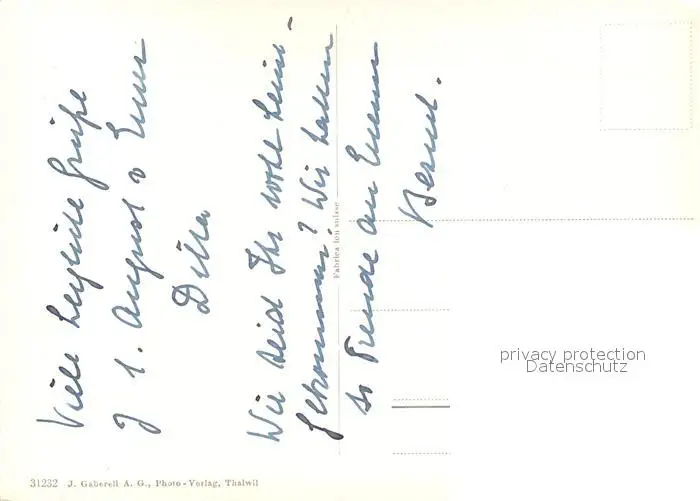 Viele herzliche Grüße
z 1. August v Eurer
Dilla
Wie seid Ihr wohl heim-
gekommen? Wir hatten
so Freude an Eurem
Besuch.
Fabrica ion suisse
31232 J. Gaberell A. G., Photo-Verlag, Thalwil
privacy protection
Datenschutz